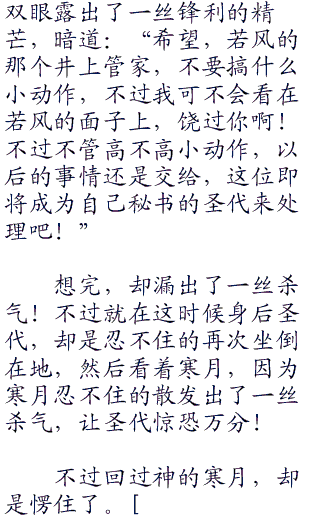 双眼露出了一丝锋利的精
芒，暗道：“希望，若风的
那个井上管家，不要搞什么
小动作，不过我可不会看在
若风的面子上，饶过你啊！
不过不管高不高小动作，以
后的事情还是交给，这位即
将成为自己秘书的圣代来处
理吧！”
想完，却漏出了一丝杀
气！不过就在这时候身后圣
代，却是忍不住的再次坐倒
在地，然后看着寒月，因为
寒月忍不住的散发出了一丝
杀气，让圣代惊恐万分！
不过回过神的寒月，却
是愣住了。[